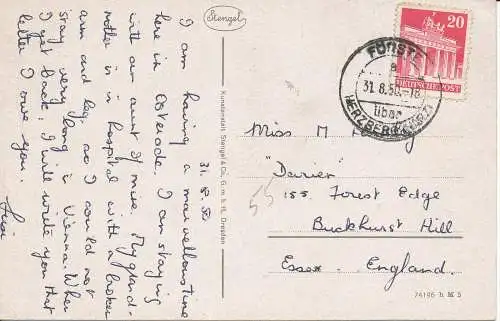 Stengel
31.8.50
I am having a marvellous time
here in Osterode. I am staying
with an aunt of mine. My grand-
mother is in hospital with a broken
arm and leg so I would not
stay very long in Vienna. When
I get back, I will write you that
letter I owe you.
Kunstanstalt Stengel & Co., G.m.b.H., Dresden
20
DEUTSCHE POST
FORSTE
31.8.50.-18
über
HERZBERG (HARZ)
Miss M
"Darien"
155 Forest Edge
Buckhurst Hill
Essex. England.
55
74196 b M 5